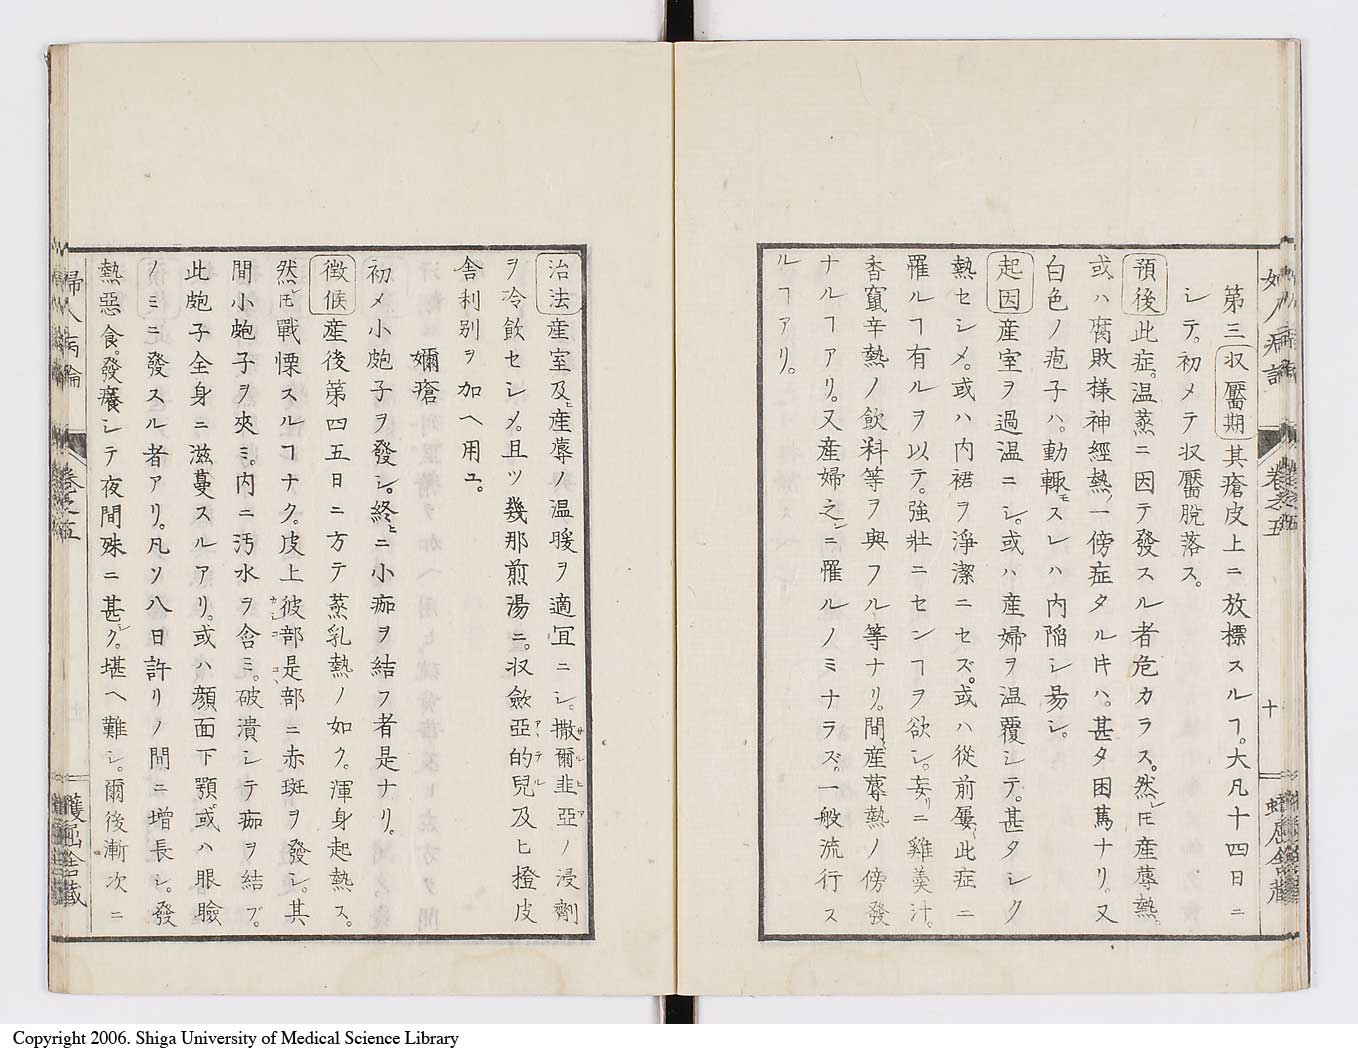 第三収靨期其瘡皮上ニ放標スルヿ。大凡十四日ニ
シテ。初メテ収靨脱落ス。
預後此症。温蒸ニ因テ發スル者危カラス。然レ𪜈産蓐熱。
或ハ腐敗様神經熱ノ一傍症タルキハ。甚タ困篤ナリ。又
白色ノ疱子ハ。動輙モスレハ内陥シ昜シ。
起因産室ヲ過温ニシ。或ハ産婦ヲ温覆シテ。甚タシク
熱セシメ。或ハ内裙ヲ淨潔ニセズ。或ハ從前屢〻此症ニ
罹ルヿ有ルヲ以テ。強壮ニセンヿヲ欲シ。妄リニ雞羮汁。
香竄辛熱ノ飲料等ヲ與フル等ナリ。間〻産蓐熱ノ傍發
ナルヿアリ。又産婦之レニ罹ルノミナラズ。一般流行ス
ルヿアリ。
婦人病論 卷之五 十
治法産室及ヒ産蓐ノ温暖ヲ適冝ニシ。撒爾韭亞ノ浸劑
サルヒア
ヲ冷飲セシメ。且ツ幾那煎湯ニ。収斂亞的兒及ヒ橙皮
アーテル
舎利別ヲ加ヘ用ユ。
嬭瘡
初メ小皰子ヲ發シ。終ヒニ小痂ヲ結フ者是ナリ。
徴候産後第四五日ニ方テ蒸乳熱ノ如ク。渾身起熱ス。
然レ𪜈戰慄スルヿナク。皮上彼部是部ニ赤斑ヲ發シ。其
カシコ コヽ
間小皰子ヲ夾ミ。内ニ汚水ヲ含ミ。破潰シテ痂ヲ結ブ。
此皰子全身ニ滋蔓スルアリ。或ハ顔面下顎或ハ眼瞼
ノミニ發スル者アリ。凡ソ八日許リノ間ニ増長シ。發
熱惡食。發癢シテ夜間殊ニ甚シク。堪ヘ難シ。爾後漸次ニ
婦人病論 卷之五